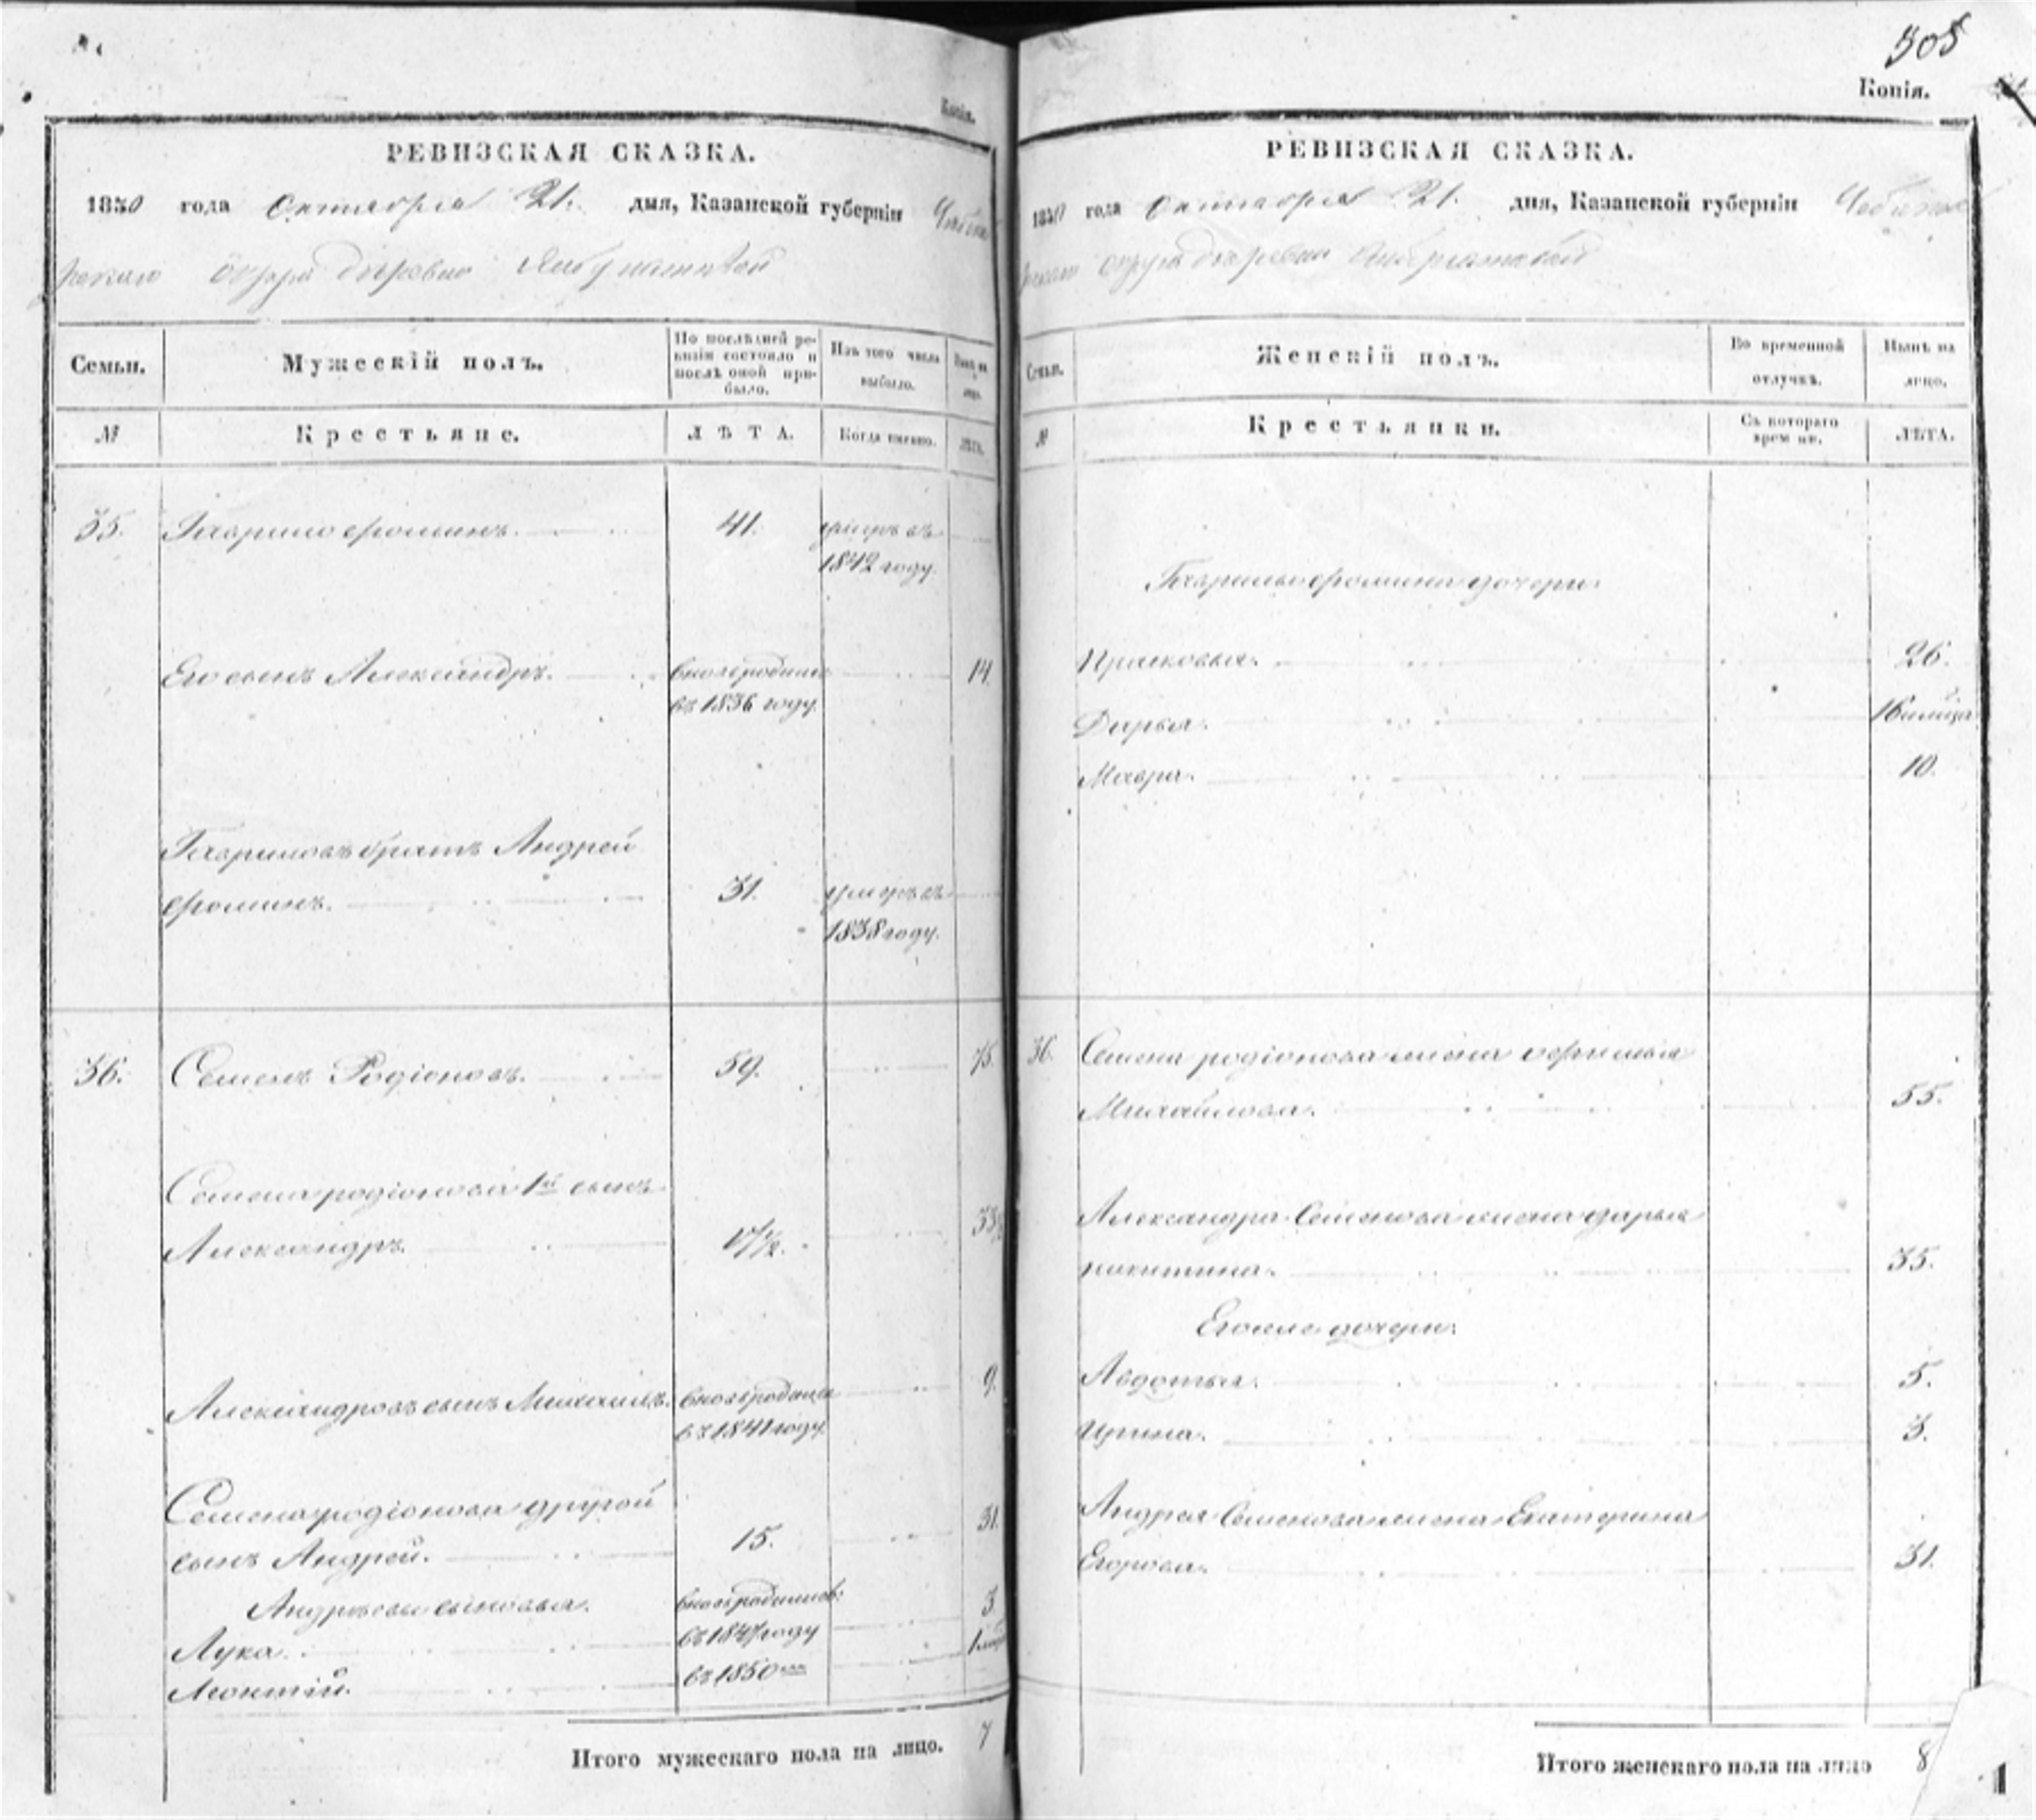 Копія.
РЕВИЗСКАЯ СКАЗКА.
1850 года Октября 21. дня, Казанской губерніи
округа деревни
Семьи. Мужескій полъ. По послѣдней ревизіи состояло и послѣ оной прибыло. Изъ того числа выбыло. Нынѣ на лицо.
№ Крестьяне. ЛѢТА. Когда именно. ЛѢТА.
35. Гаврило Фоминъ. 41. умеръ въ
1842 году.
Его сынъ Александръ. вновь родился 14.
въ 1836 году.
Гавриловъ братъ Андрей
Фоминъ. 31. умеръ въ
1838 году.
36. Семенъ Родіоновъ. 59. 75.
Семена родіонова 1й сынъ
Александръ. 17½. 33½
Александровъ сынъ Михаилъ. вновь родился 9.
въ 1841 году
Семена родіонова другой
сынъ Андрей. 15. 31.
Андреевы сыновья. вновь родились:
Лука. въ 1847 году 3
Леонтій. въ 1850 1
Итого мужескаго пола на лицо. 7
305
Копія.
РЕВИЗСКАЯ СКАЗКА.
1850 года Октября 21. дня, Казанской губерніи
округа деревни
Семьи. Женскій полъ. Во временной отлучкѣ. Нынѣ на лицо.
№ Крестьянки. Съ котораго времени. ЛѢТА.
Гаврилы Фомина дочери:
Прасковья. 26.
Дарья. 16
Мавра. 10.
36. Семена родіонова жена
Михайлова. 55.
Александра Семенова жена дарья
никитина. 35.
Его же дочери:
Авдотья. 5.
Ирина. 3.
Андрея Семенова жена Екатерина
Егорова. 31.
Итого женскаго пола на лицо 8
1